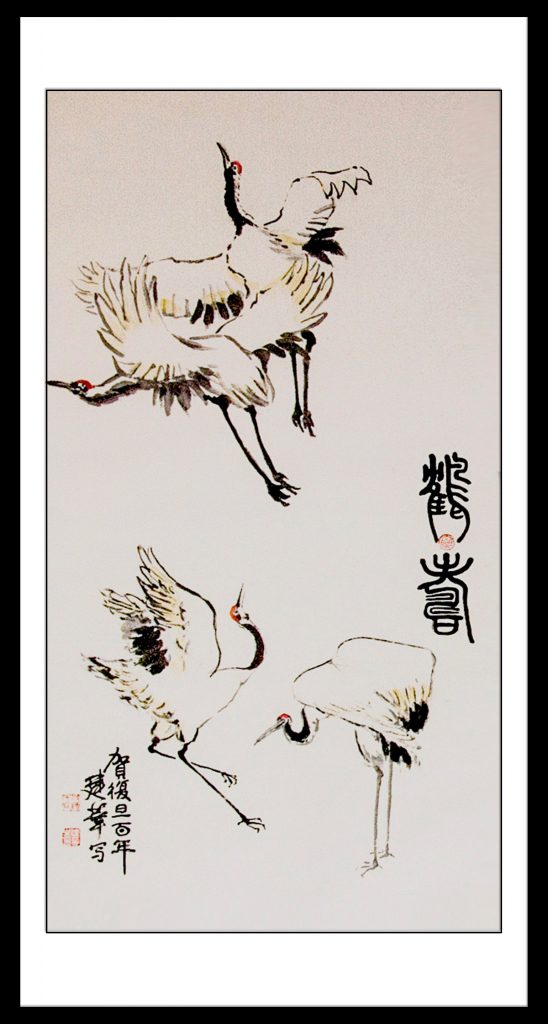 鶴壽
賀復旦百年
建華写